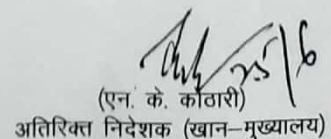 25/6
(एन. के. कोठारी)
अतिरिक्त निदेशक (खान–मुख्यालय)